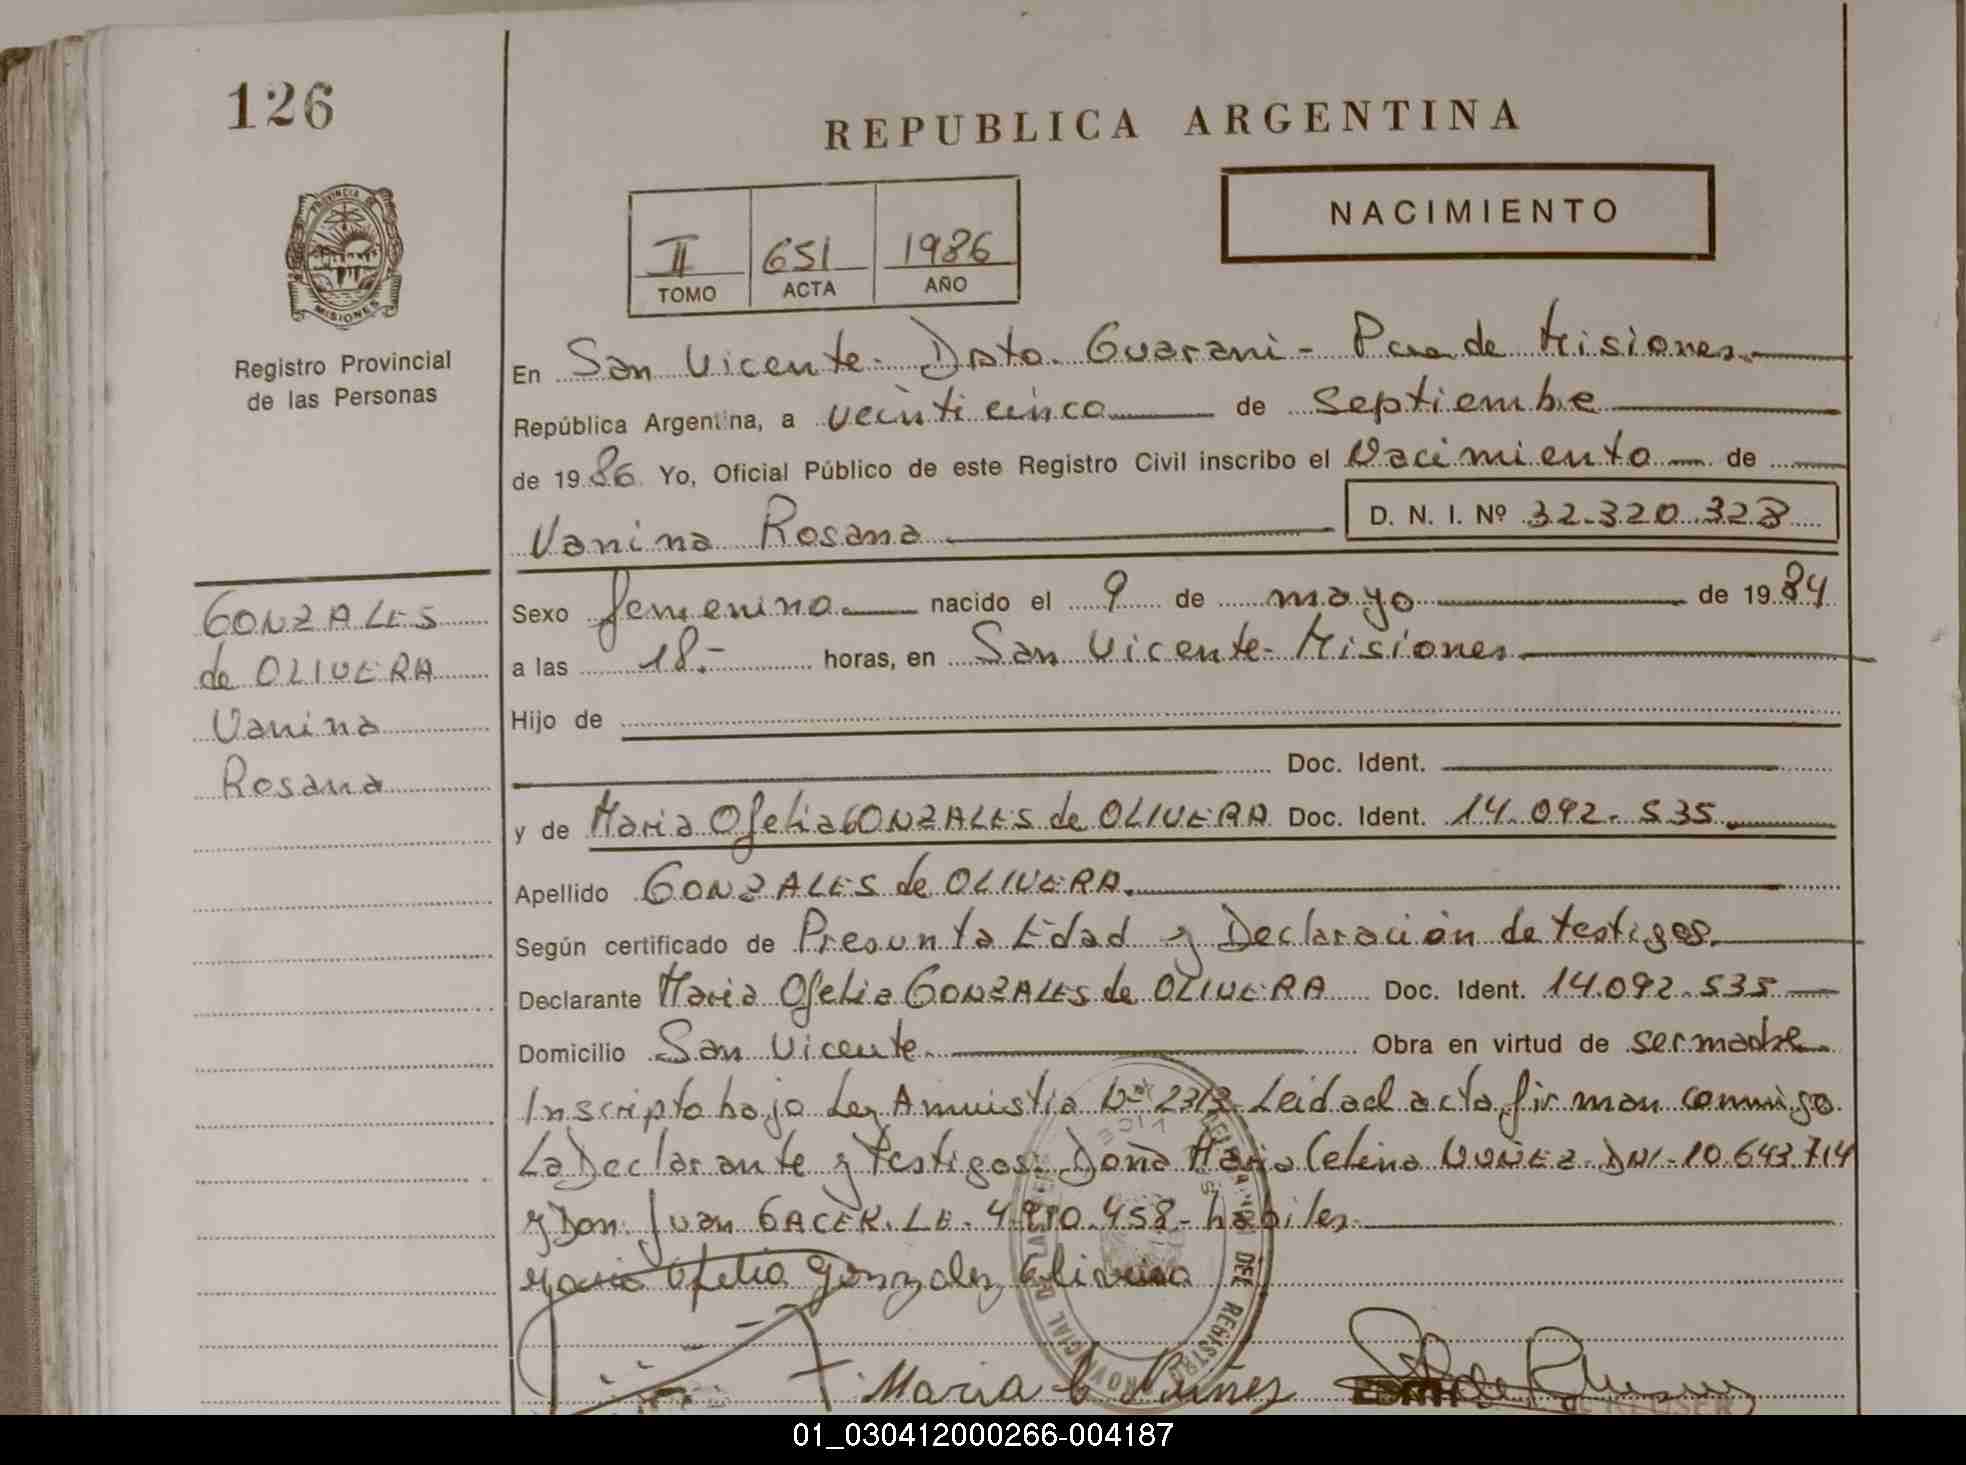 126
REPUBLICA ARGENTINA
NACIMIENTO
PROVINCIA DE
MISIONES
II 651 1986
TOMO ACTA AÑO
Registro Provincial
de las Personas
En San Vicente - Dpto. Guarani - Pcia de Misiones
República Argentina, a veinticinco de septiembre
de 1986 Yo, Oficial Público de este Registro Civil inscribo el Nacimiento de
Vanina Rosana D. N. I. Nº 32.320.323
GONZALES
de OLIVERA
Vanina
Rosana
Sexo femenino nacido el 9 de mayo de 1984
a las 18.- horas, en San Vicente - Misiones
Hijo de
Doc. Ident.
y de Maria Ofelia GONZALES de OLIVERA Doc. Ident. 14.092.535
Apellido GONZALES de OLIVERA.
Según certificado de Presunta Edad y Declaración de testigos.
Declarante Maria Ofelia GONZALES de OLIVERA Doc. Ident. 14.092.535
Domicilio San Vicente Obra en virtud de ser madre
Inscripto bajo Ley Amnistia Nº 2313 Leida el acta firman conmigo
La Declarante y Testigos: Dona Maria Celina NUÑEZ - DNI - 10.643.714
y Don Juan GACER. LE. 458 - habiles
Maria Ofelia Gonzales Olivera
PROVINCIAL DEL REGISTRO
Maria C Nuñes
01_030412000266-004187